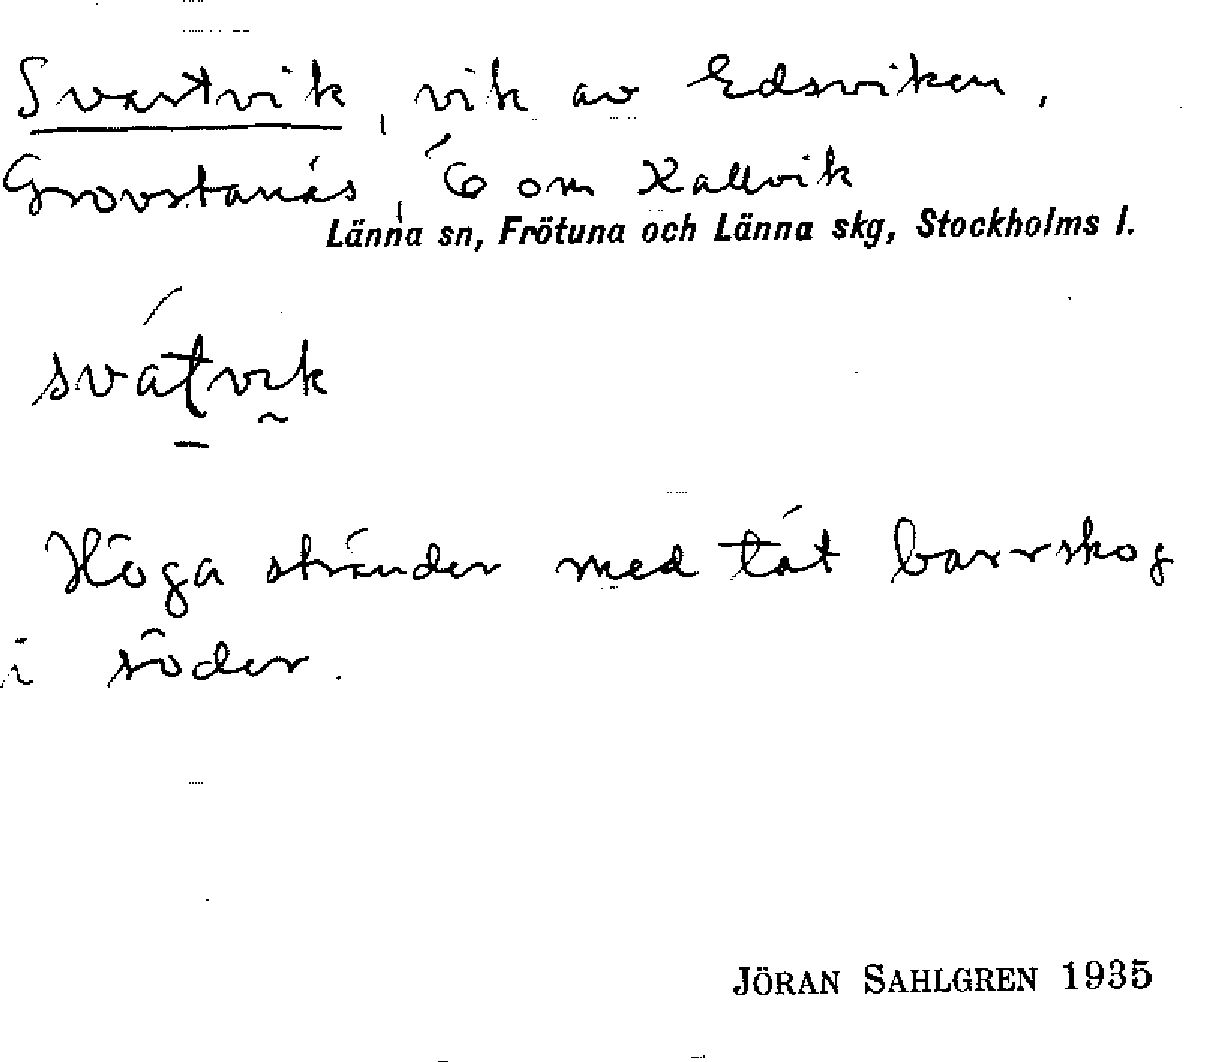 Svartvik, vik av Edsviken,
Grovstanäs, Ö om Kallvik
Länna sn, Frötuna och Länna skg, Stockholms l.
svatvik
Höga stränder med tät barrskog
i söder.
JÖRAN SAHLGREN 1935